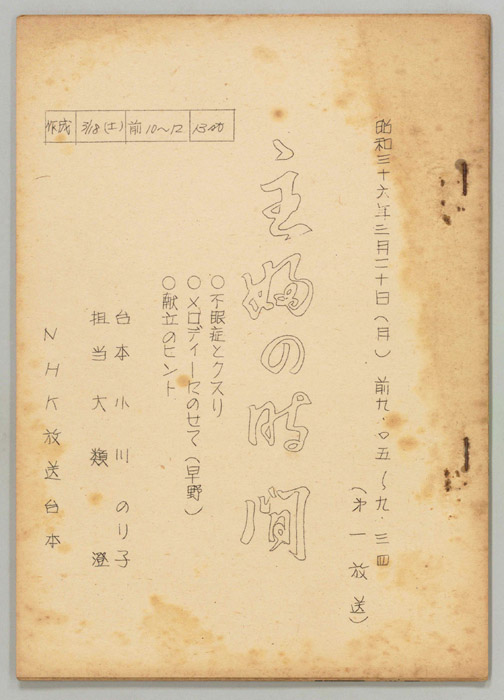 昭和三十六年三月二十日(月) 前九・〇五〜九・三四
(第一放送)
主婦の時間
〇不眠症とクスリ
〇メロディーにのせて(早野)
〇献立のヒント
台本 小川 のり子
担当 大類 澄
NHK放送台本
作成 3/18(土) 前10〜12